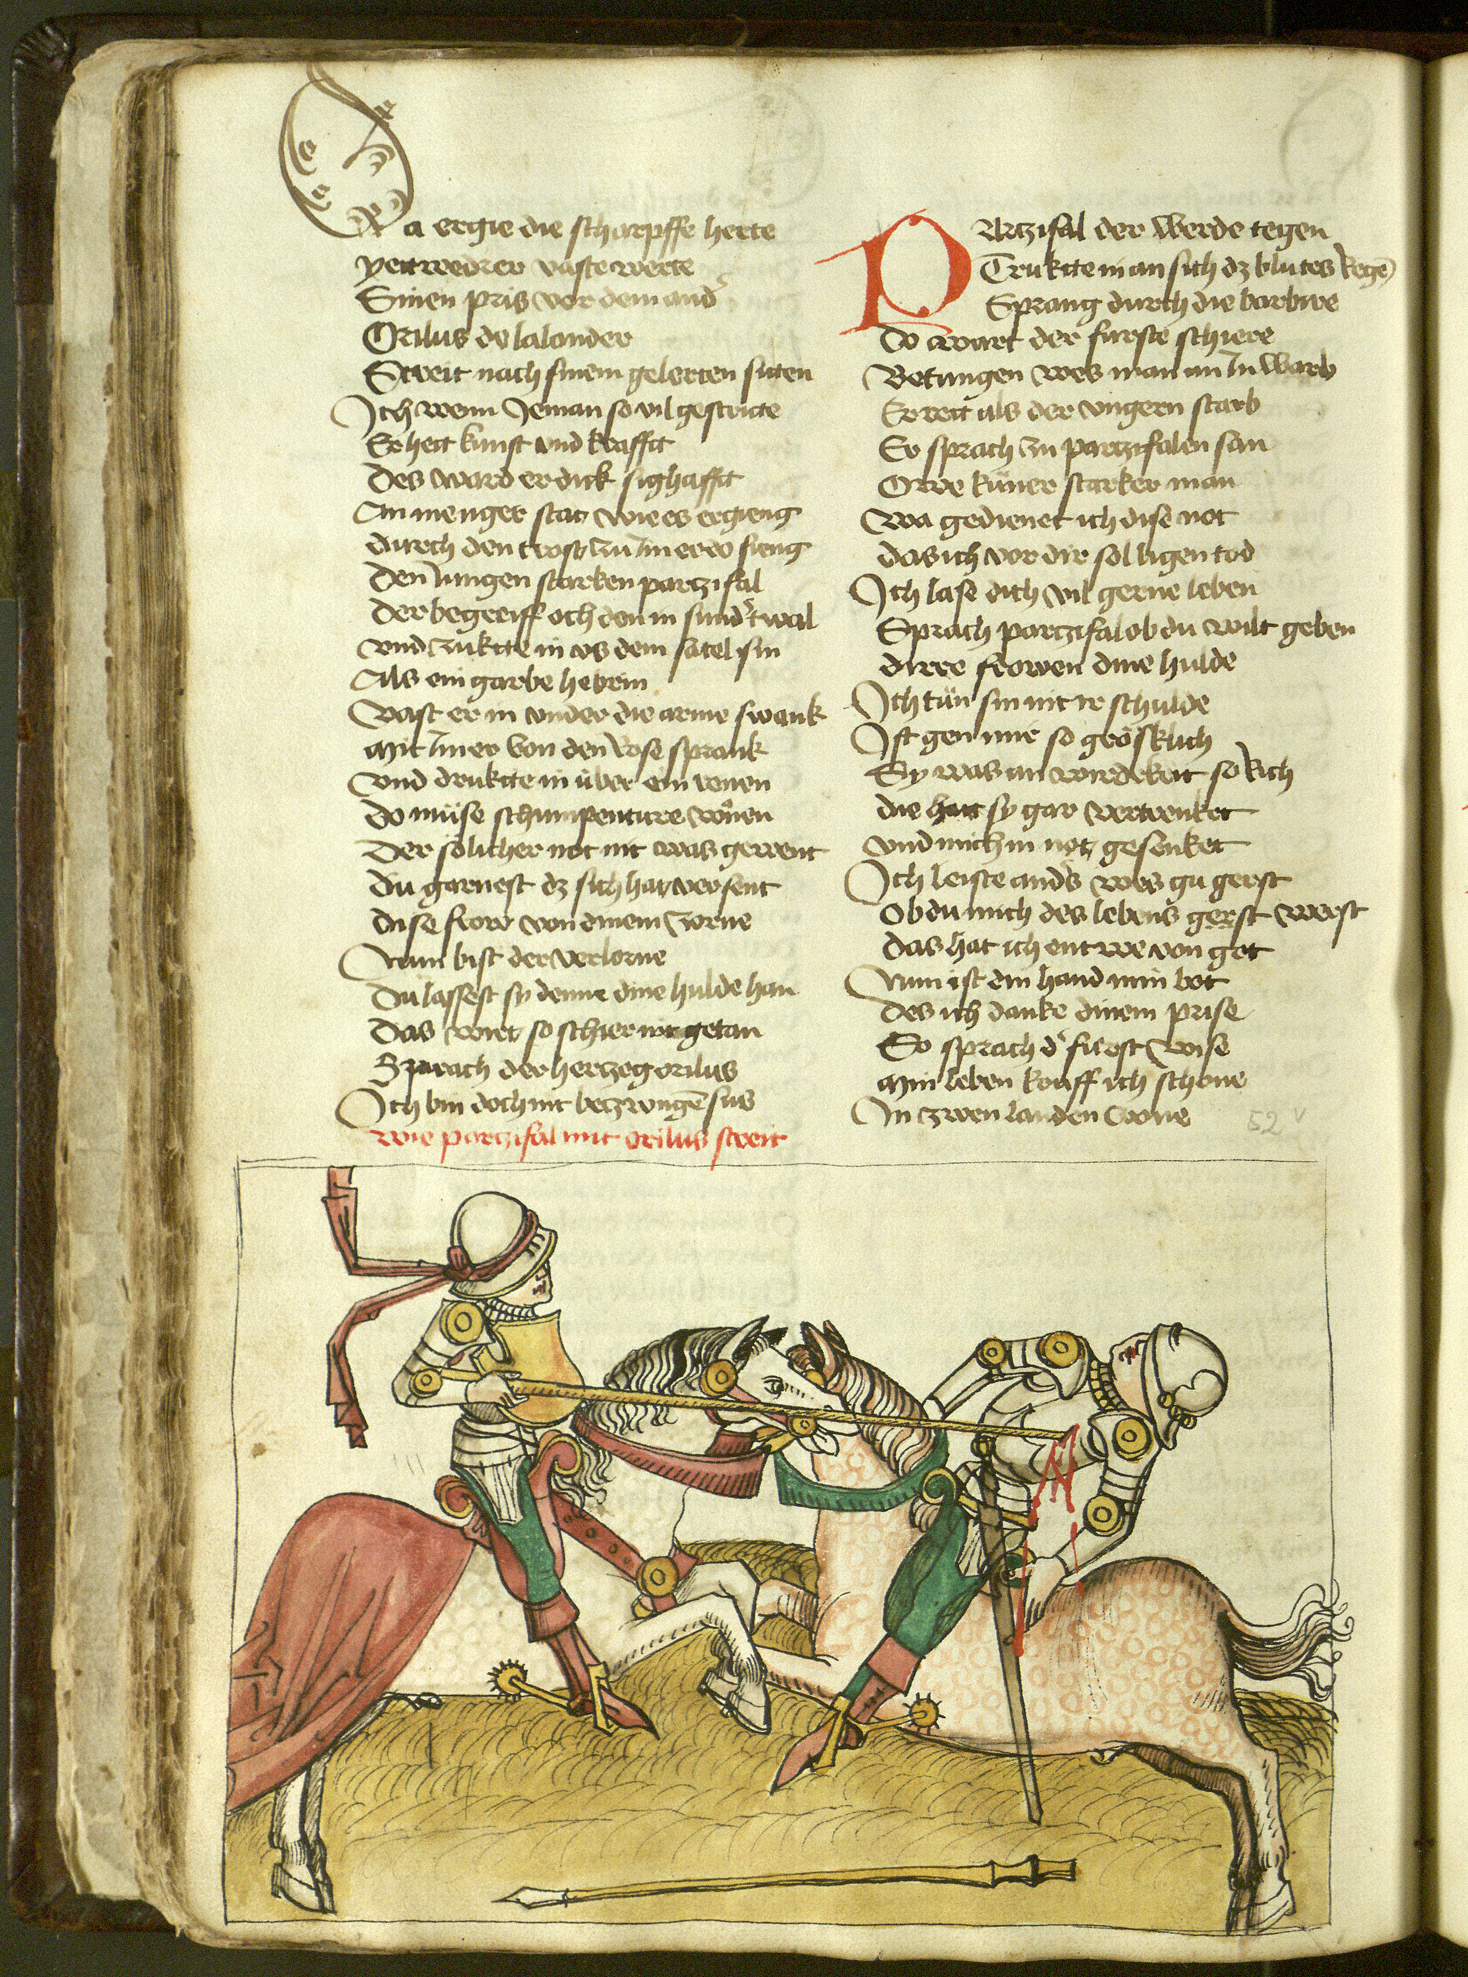 Da ergie die scharpffe herte
yettwedrer vaste werte
Sinen pris vor dem and
Orilus de lalander
Streit nach sinem gelerten siten
Ich wenn Jeman so vil gestritte
Er hett kunst vnd krafft
Des ward er dick sighafft
An menger stat wie es ergieng
durch den trost zu Im er do fieng
Den Jungen starken partzifal
Der begreiff och den in sund twal
vnd zuktte in vs dem satel sin
Als ein garbe hebrin
Vast er in vnder die arme swank
Mit Im er von den rose sprank
Vnd druktte in über ein ronen
Do müse schumpenture wonen
Der sölicher not nit was gewent
du garnest dz sich hat versent
dise frow von dinem zorne
Nun bist der verlorne
Du lassest sy denne dine hulde han
Das wirt so schier nit getan
Sprach der hertzog orilus
Ich bin doch nit betzwungē sus
wie partzifal mit orilus streit
PArtzifal der werde tegen
Truktte in an sich dz blutes Regē
Sprang durch die barbire
Do wart der furste schiere
Betungen wes man an In warb
Er tett als der vngern starb
Er sprach zu partzifalen san
Owe küner starker man
wa gedienet ich dise not
das ich vor dir sol ligen tod
Ich lase dich vil gerne leben
Sprach partzifal ob du wilt geben
dirre frowen dine hulde
Ich tün sin nit ir schulde
Ist gen mir so grösklich
Sy was an wirdekeit so Rich
die hatt sy gar verkrenket
vnd mich in not gesenket
Ich leiste anders wes gu gerst
Ob du mich des lebens gerst werst
das hat ich ent we von got
Nun ist din hand min bot
des ich danke dinem prise
So sprach d furst wise
Min leben kouff ich schone
In zwen landen Crone
52 v